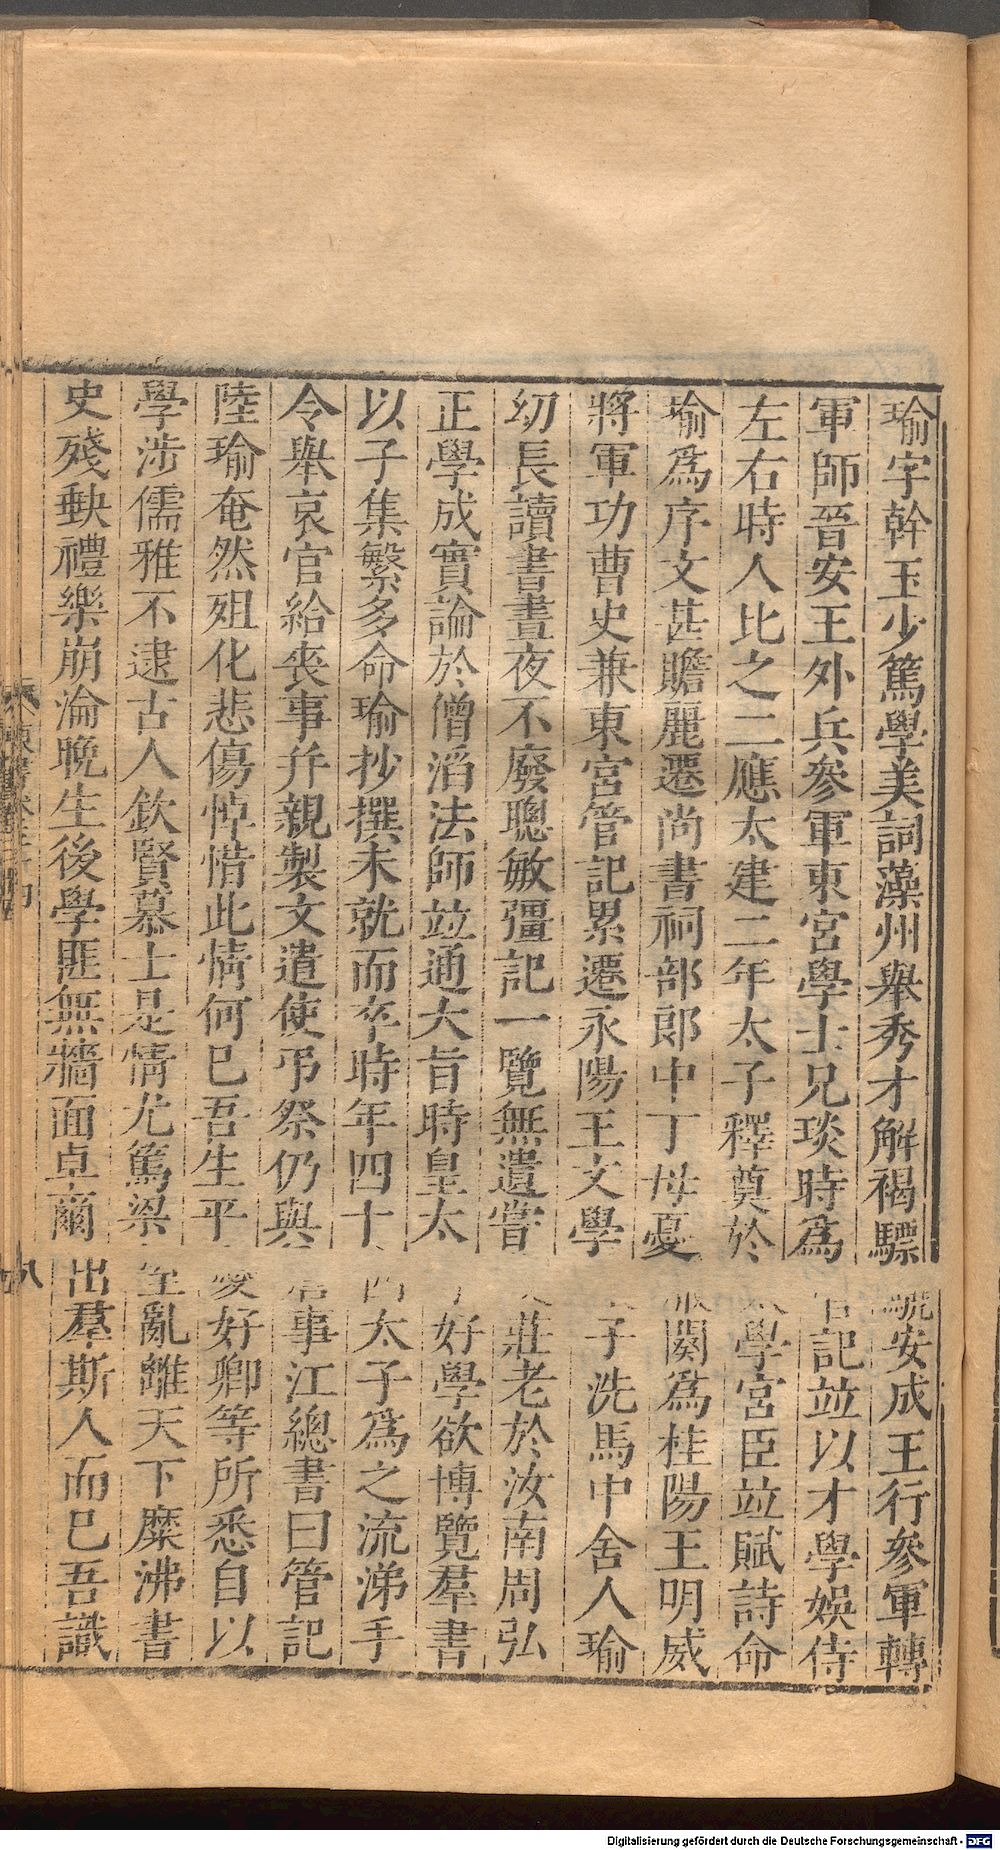 瑜字幹玉少篤學美詞藻州舉秀才解褐驃安成王行參軍轉
軍師晉安王外兵參軍東宮學士兄琰時爲管記竝以才學娛侍
左右時人比之二應太建二年太子釋奠於學宮臣竝賦詩命
瑜爲序文甚贍麗遷尚書祠部郎中丁母憂服闋爲桂陽王明威
將軍功曹史兼東宮管記累遷永陽王文學子洗馬中舍人瑜
幼長讀書晝夜不廢聰敏彊記一覽無遺嘗莊老於汝南周弘
正學成實論於僧滔法師竝通大旨時皇太好學欲博覽羣書
以子集繁多命瑜抄撰未就而卒時年四十太子爲之流涕手
令舉哀官給喪事幷親製文遣使弔祭仍與事江總書曰管記
陸瑜奄然殂化悲傷悼惜此情何已吾生平愛好卿等所悉自以
學涉儒雅不逮古人欽賢慕士是情尤篤梁室亂離天下糜沸書
史殘缺禮樂崩淪晚生後學匪無牆面卓爾出羣斯人而已吾識
八
Digitalisierung gefördert durch die Deutsche Forschungsgemeinschaft - DFG